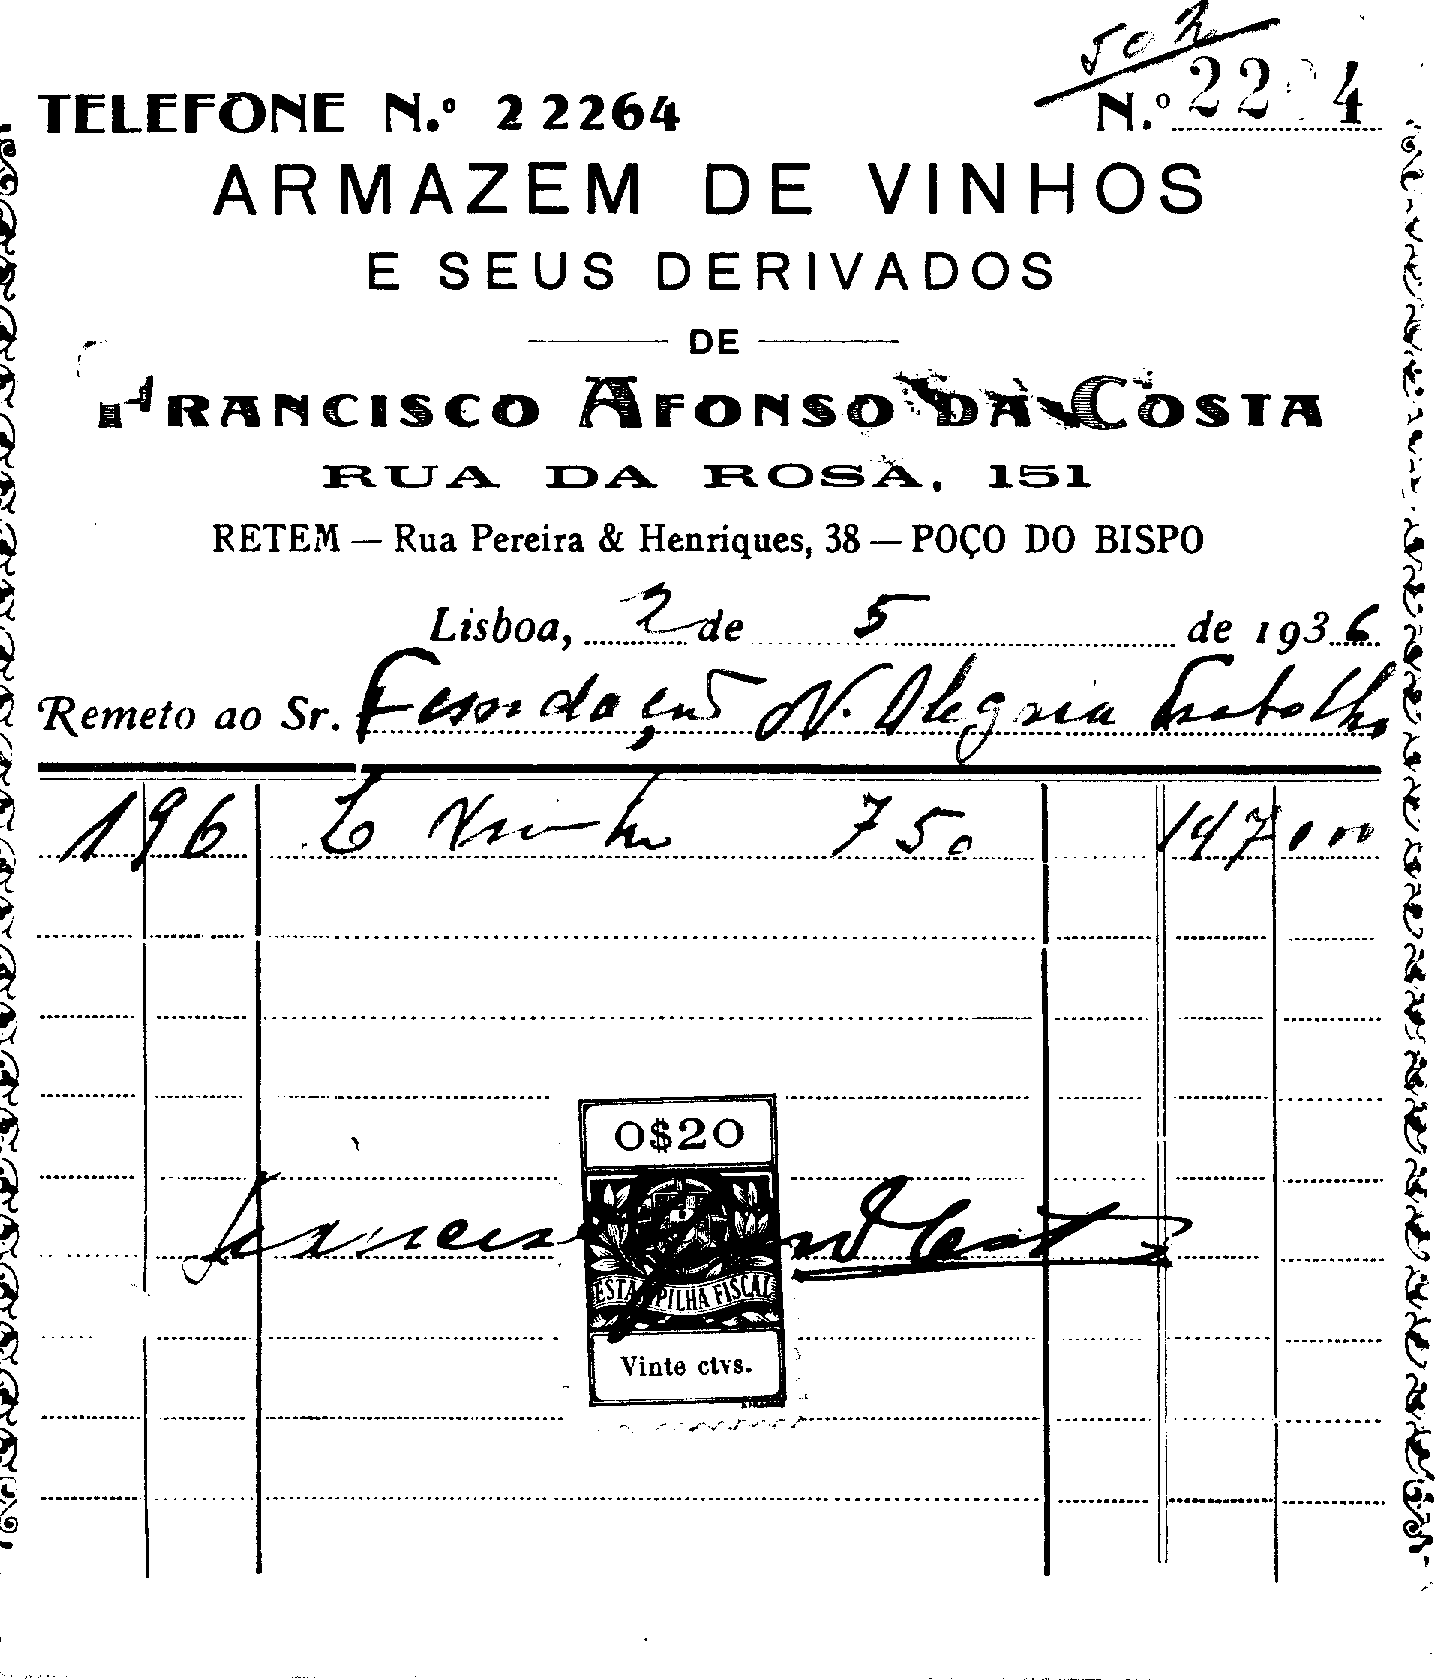 50
TELEFONE N.º 22264 N.º 22 4
ARMAZEM DE VINHOS
E SEUS DERIVADOS
DE
FRANCISCO AFONSO DA COSTA
RUA DA ROSA, 151
RETEM — Rua Pereira & Henriques, 38 — POÇO DO BISPO
Lisboa, 2 de 5 de 1936
Remeto ao Sr. N. Alegria Trabalho
196 L Vinho 750 147,000
0$20
ESTAMPILHA FISCAL
Vinte ctvs.